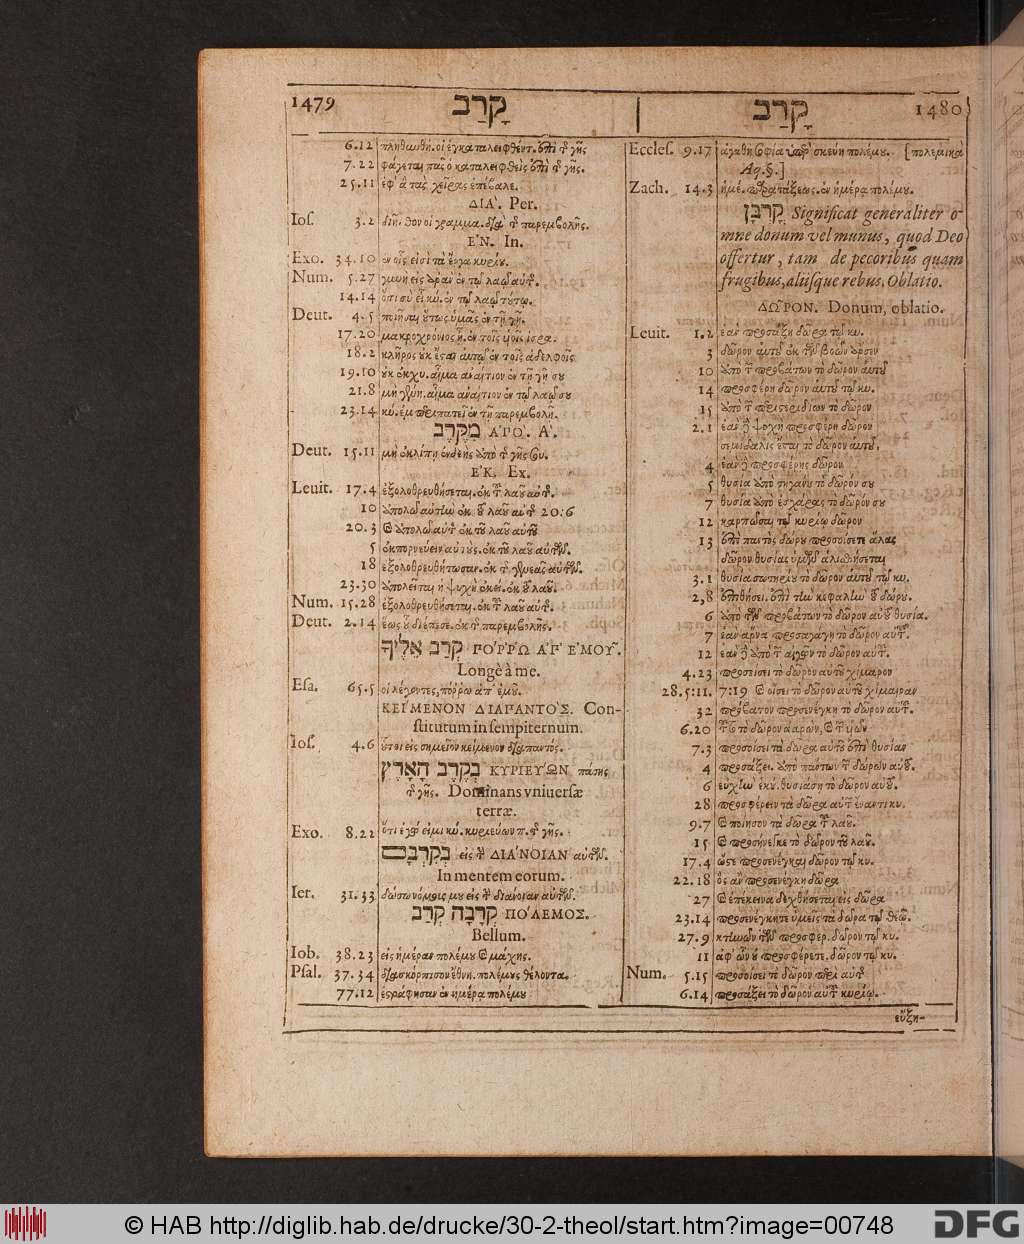 1479 קָרַב
6.12 πληθωθή. οἱ ἐγκαταλειφθέντ. ἐπὶ τ γῆς
7.22 φάγεται πᾶς ὁ καταλειφθεὶς ἐπὶ τ γῆς.
25.11 ἐφ' ἃ τὰς χεῖρας ἐπέβαλε.
ΔΙΑ'. Per.
Ios. 3.2 οἱ γραμμα. διὰ τ παρεμβολῆς.
Ε'Ν. In.
Exo. 34.10 ἐν οἷς εἰσὶ τὰ ἔργα κυρίου.
Num. 5.27 εἰς ἀρὰν ἐν τῷ λαῷ αὐτ.
14.14 ὅτι σὺ εἶ κύ. ἐν τῷ λαῷ τούτῳ.
Deut. 4.5 ποιῆσαι οὕτως ὑμᾶς ἐν τῇ γῇ.
17.20 μακροχρόνιος ᾖ. ἐν τοῖς υἱοῖς ἰσρα.
18.2 κλῆρος οὐκ ἔσται αὐτῷ ἐν τοῖς ἀδελφοῖς
19.10 οὐκ ἐκχυ. αἷμα ἀναίτιον ἐν τῇ γῇ σου
21.8 μὴ αἷμα ἀναίτιον ἐν τῷ λαῷ σου
23.14 κύ. ἐμπεριπατεῖ ἐν τῇ παρεμβολῇ.
מִקֶּרֶב ΑΓΟ'. Α'.
Deut. 15.11 μὴ ἐκλίπῃ ἐνδεὴς ἀπὸ τ γῆς σου.
Ε'Κ. Ex.
Leuit. 17.4 ἐξολοθρευθήσεται. ἐκ τ λαοῦ αὐτ.
10 ἀπολῶ αὐτὴν ἐκ τ λαοῦ αὐτ 20:6
20.3 ἀπολῶ αὐτ ἐκ τοῦ λαοῦ αὐτοῦ
5 ἐκπορνεύειν αὐτούς. ἐκ τοῦ λαοῦ αὐτῶν.
18 ἐξολοθρευθήτωσαν. ἐκ τ γενεᾶς αὐτῶν.
23.30 ἀπολεῖται ἡ ψυχὴ ἐκεί. ἐκ τ λαοῦ.
Num. 15.28 ἐξολοθρευθήσεται. ἐκ τ λαοῦ αὐτ.
Deut. 2.14 ἕως οὗ διέπεσε. ἐκ τ παρεμβολῆς.
קְרַב אֵלֶיךָ ΓΟ'ΡΡΩ ΑΓ' Ε'ΜΟΥ͂.
Longè à me.
Esa. 65.5 οἱ λέγοντες, πόρρω ἀπ' ἐμοῦ.
ΚΕΙ'ΜΕΝΟΝ ΔΙΑΓΑΝΤΟ'Σ. Con-
stitutum in sempiternum.
Ios. 4.6 οὗτοι εἰς σημεῖον κείμενον διαπαντός.
בְּקֶרֶב הָאָרֶץ ΚΥΡΙΕΥ'ΩΝ πάσης
τ γῆς. Dominans vniuersæ
terræ.
Exo. 8.22 ὅτι ἐγώ εἰμι κύ. κυριεύων π. τ γῆς.
בְּקִרְבָּם εἰς τ ΔΙΑ'ΝΟΙΑΝ αὐτῶν.
In mentem eorum.
Ier. 31.33 δώσω νόμοις μου εἰς τ διάνοιαν αὐτῶν.
קְרָבָה קְרָב ΠΟ'ΛΕΜΟΣ.
Bellum.
Iob. 38.23 εἰς ἡμέραν πολέμου μάχης.
Psal. 37.34 διασκόρπισον ἔθνη. πολέμους θέλοντα.
77.12 ἐστράφησαν ἐν ἡμέρᾳ πολέμου
קָרַב 1480
Eccles. 9.17 ἀγαθὴ σοφία ὑπὲρ σκεύη πολέμου. [πολεμικὰ
Aq. §.]
Zach. 14.3 ἡμέ. παρατάξεως. ἐν ἡμέρᾳ πολέμου.
קָרְבָּן Significat generaliter o-
mne donum vel munus, quod Deo
offertur, tam de pecoribus quam
frugibus, aliisque rebus, Oblatio.
ΔΩ͂ΡΟΝ. Donum, oblatio.
Leuit. 1.2 ἐὰν προσάξῃ δῶρα τῷ κυ.
3 δῶρον αὐτοῦ ἐκ τῶν βοῶν ἄρσεν
10 ἀπὸ τ προβάτων τὸ δῶρον αὐτοῦ
14 προσφέρῃ δῶρον αὐτοῦ τῷ κυ.
15 ἀπὸ τ περιστεριδίων τὸ δῶρον
2.1 ἐὰν ψυχὴ προσφέρῃ δῶρον
σεμίδαλις ἔσται τὸ δῶρον αὐτοῦ.
4 ἐὰν προσφέρῃς δῶρον
5 θυσία ἀπὸ τηγάνου τὸ δῶρόν σου
7 θυσία ἀπὸ ἐσχάρας τὸ δῶρόν σου
12 κάρπωσαι τῷ κυρίῳ δῶρον
13 ἐπὶ παντὸς δώρου προσοίσετε ἅλας
δῶρον θυσίας ὑμῶν ἁλισθήσεται
3.1 θυσία σωτηρίου τὸ δῶρον αὐτοῦ τῷ κυ.
2,8 ἐπιθήσει. ἐπὶ τὴν κεφαλὴν τ δώρου.
6 ἀπὸ τῶν προβάτων τὸ δῶρον αὐτοῦ θυσία.
7 ἐὰν ἄρνα προσαγάγῃ τὸ δῶρον αὐτ.
12 ἐὰν ἀπὸ τ αἰγῶν τὸ δῶρον αὐτ.
4.23 προσοίσει τὸ δῶρον αὐτοῦ χίμαρον
28.5:11. 7:19 οἴσει τὸ δῶρον αὐτοῦ χίμαιραν
32 πρόβατον προσενέγκῃ τὸ δῶρον αὐτ.
6.20 τὸ δῶρον ἀαρών, τ υἱῶν
7.3 προσοίσει τὰ δῶρα αὐτοῦ ἐπὶ θυσίαν
4 προσάξει. ἀπὸ πάντων τ δώρων αὐτοῦ.
6 εὐχὴν ἑκού. θυσιάσῃ τὸ δῶρον αὐτοῦ.
28 προσφέρειν τὰ δῶρα αὐτ ἔναντι κυ.
9.7 ποίησον τὰ δῶρα τ λαοῦ.
15 προσήνεγκε τὸ δῶρον τοῦ λαοῦ.
17.4 ὥστε προσενέγκαι δῶρον τῷ κυ.
22.18 ὃς ἂν προσενέγκῃ δῶρα
27 ἐπέκεινα δεχθήσεται εἰς δῶρα
23.14 προσενέγκητε ὑμεῖς τὰ δῶρα τῷ θεῷ.
27.9 κτηνῶν τῶν προσφερ. δῶρον τῷ κυ.
11 ἀφ' ὧν οὐ προσφέρετε. δῶρον τῷ κυ.
Num. 5.15 προσοίσει τὸ δῶρον περὶ αὐτ
6.14 προσάξει τὸ δῶρον αὐτ κυρίῳ.
εὔξη-
© HAB http://diglib.hab.de/drucke/30-2-theol/start.htm?image=00748
DFG